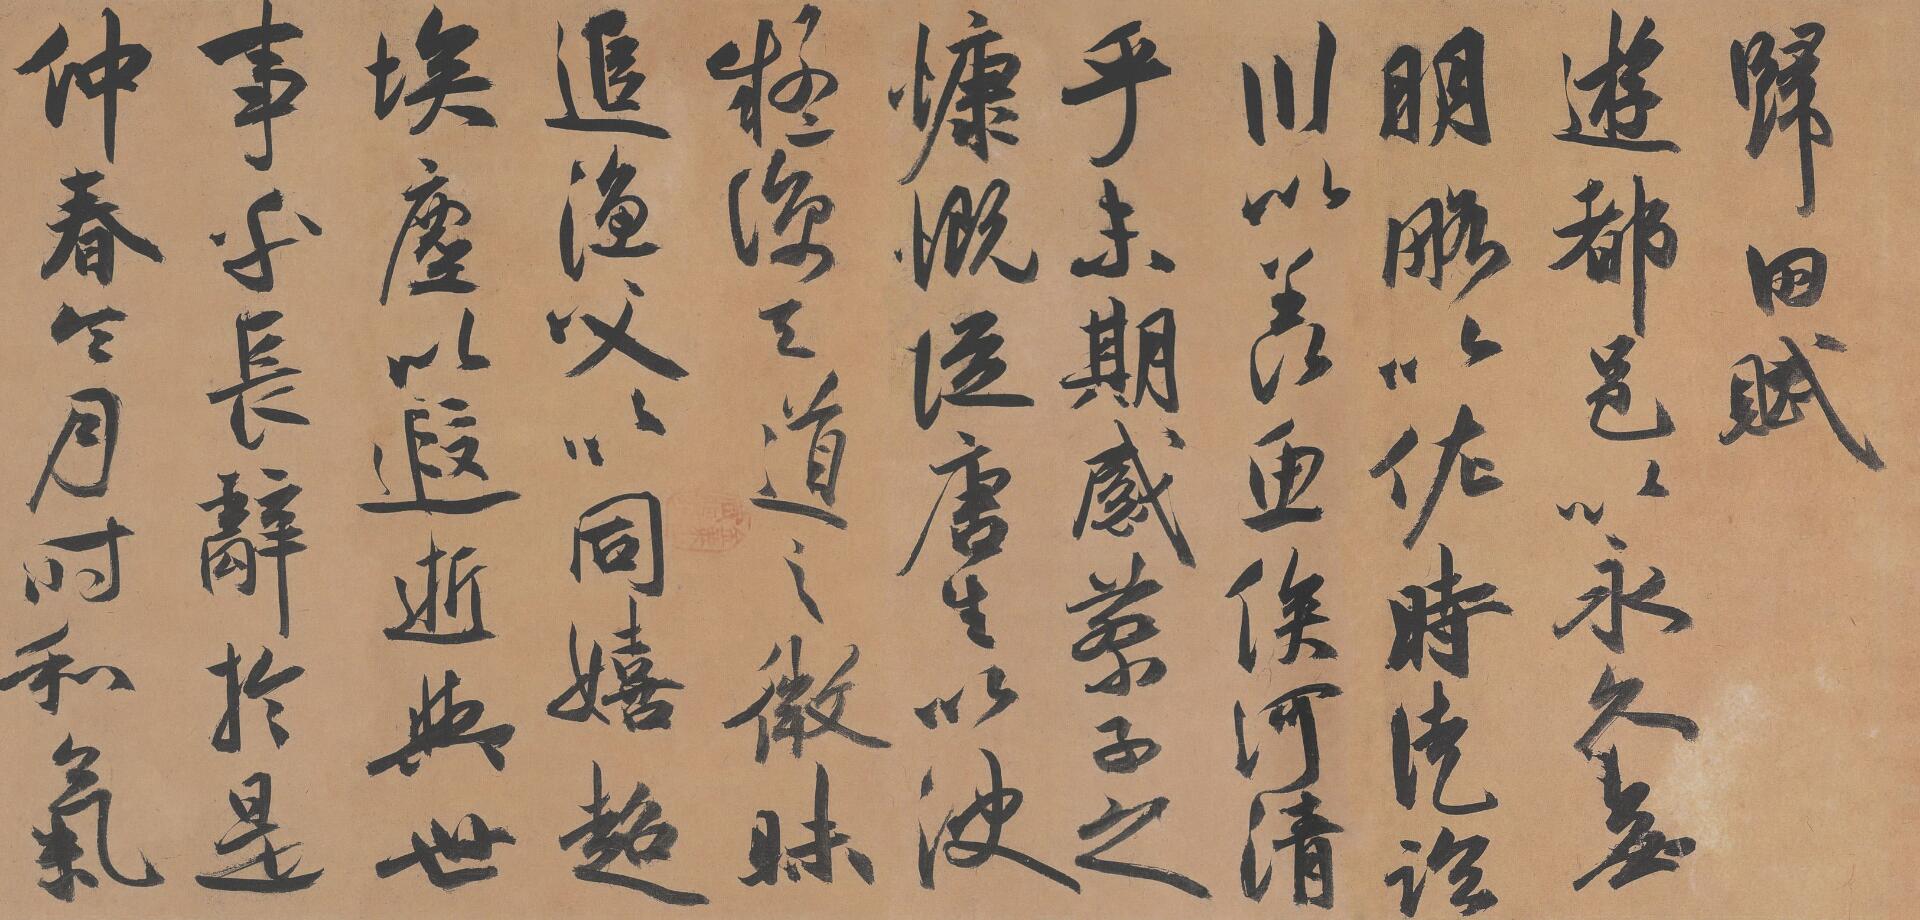 歸田賦
遊都邑以永久無
明略以佐時徒臨
川以羨魚俟河清
乎未期感蔡子之
慷慨從唐生以決
疑諒天道之微昧
追漁父以同嬉超
埃塵以遐逝與世
事乎長辭於是
仲春令月時和氣